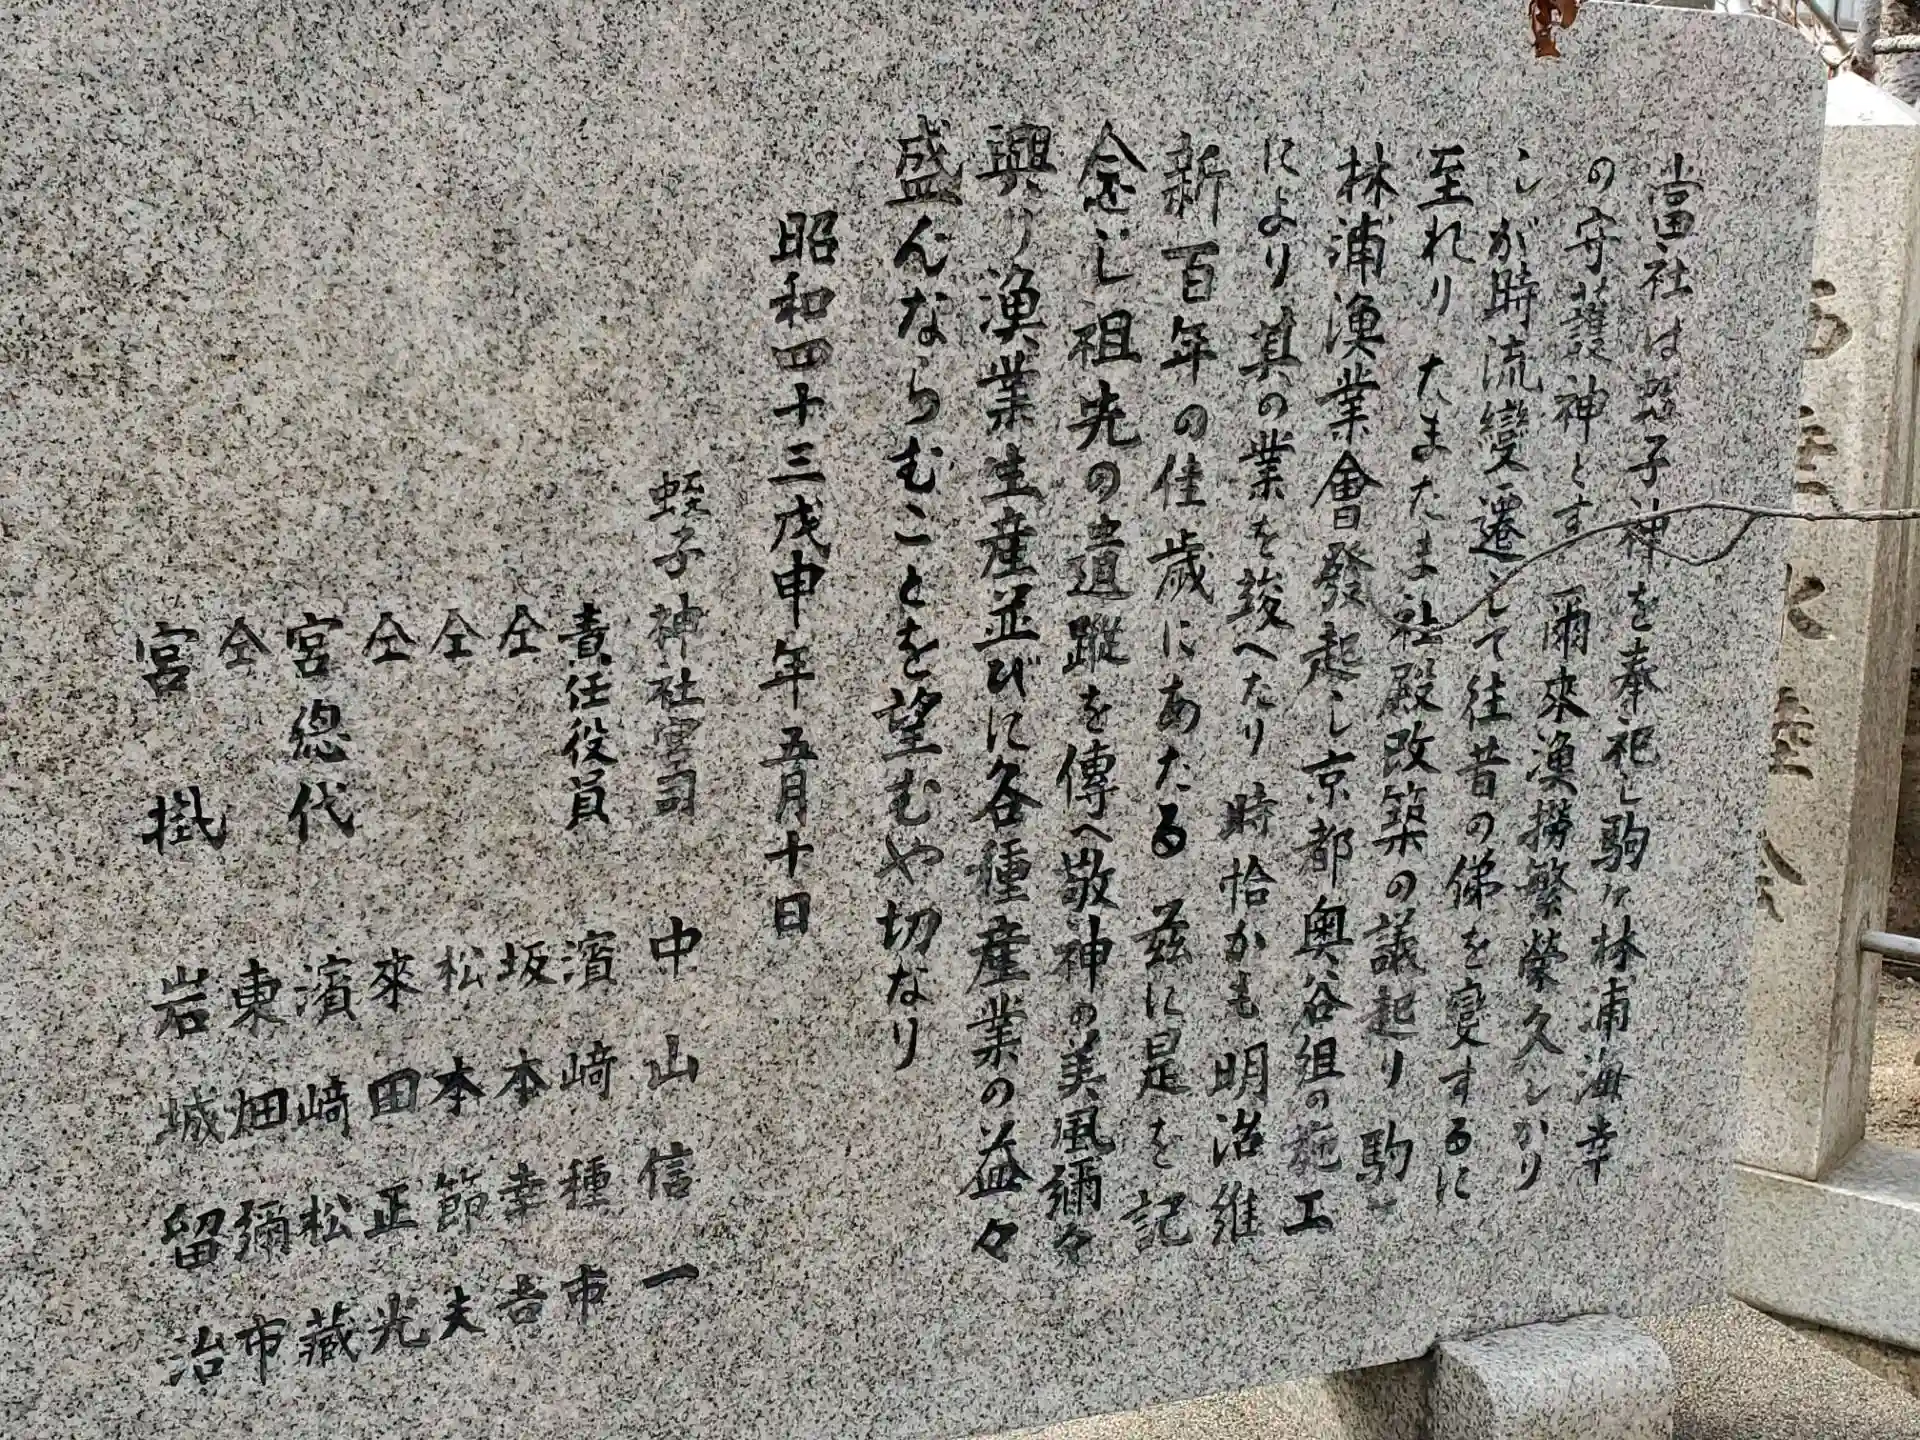 當社は蛭子神を奉祀し駒ヶ林浦海幸
の守護神とす 爾來漁撈繁榮久しかり
しが時流變遷して往昔の俤を変するに
至れり たまたま社殿改築の議起り駒ヶ
林浦漁業會發起し京都奥谷組の施工
により其の業を竣へたり 時恰かも明治維
新百年の佳歳にあたる 茲に是を記
念し祖先の遺蹤を傳へ敬神の美風彌々
興り漁業生産並びに各種産業の益々
盛んならむことを望むや切なり
昭和四十三戊申年五月十日
蛭子神社宮司 中山信一
責任役員 濱﨑種市
仝 坂本幸吉
仝 松本節夫
仝 來田正光
宮總代 濱﨑松藏
仝 東畑彌市
宮掛 岩城留治